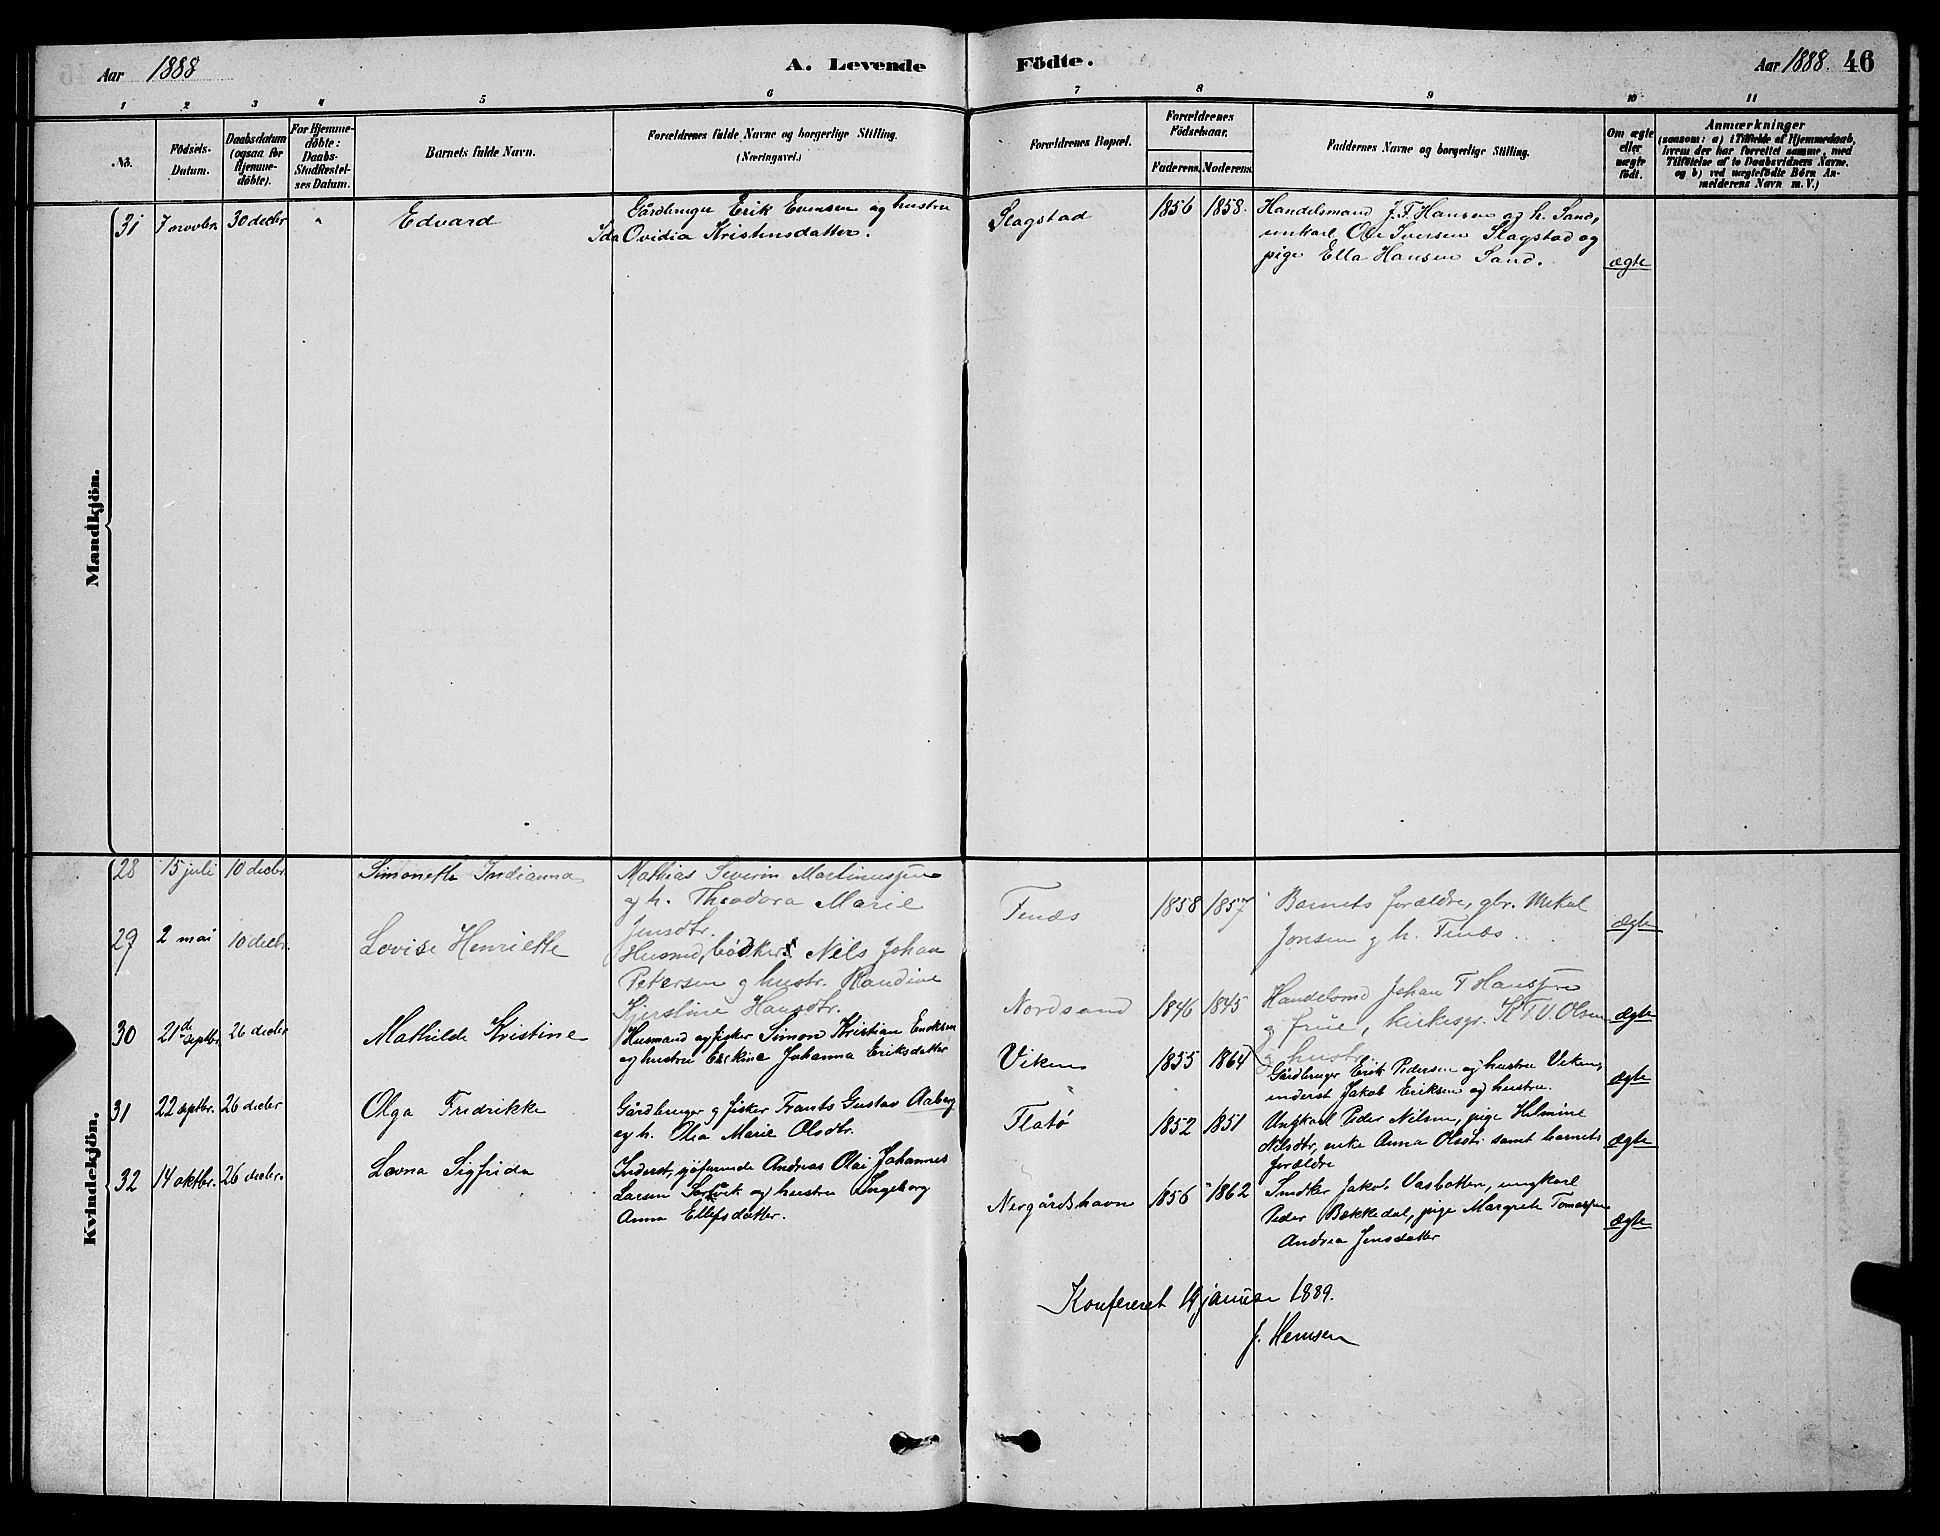 Aar 1888
A. Levende
Födte.
Aar 1888. 46
1 2 3 4 5 6 7 8 9 10 11
No.
Födsels-
Datum.
Daabsdatum
(ogsaa for
Hjemme-
döbte).
For Hjemme-
döbte:
Daabs-
Stadfæstel-
ses Datum.
Barnets fulde Navn.
Forældrenes fulde Navne og borgerlige Stilling.
(Næringsvei.)
Forældrenes Bopæl.
Forældrenes
Födselsaar.
Faderens. Moderens.
Faddernes Navne og borgerlige Stilling.
Om ægte
eller
uægte
födt.
Anmærkninger
(saasom: a) i Tilfælde af Hjemmedaab,
hvem der har forrettet samme, med
Tilföielse af to Daabsvidners Navne.
og b) ved uægtefödte Börn An-
melderens Navn m. V.)
Mandkjön.
31 7 novbr. 30 decbr " Edvard
Gårdbruger Erik Evensen og hustru
Ida Ovidia Kristensdatter.
Slagstad 1856 1858.
Handelsmand J. F. Hansen og h. Sand,
unkarl Ole Iversen Slagstad og
pige Ella Hansen Sand.
ægte
Kvindekjön.
28 15 juli 10 decbr Simonette Indianna
Mathias Severin Martinussen
og h. Theodora Marie
Jensdtr.
Finæs 1858 1857
Barnets forældre, gbr. Mekal
Jonsen g h. Finæs.
ægte
29 2 mai 10 decbr. Lovise Henriette
Husmd, bödker Nels Johan
Petersen g hustr. Randine
Kjerstine Hansdtr.
Nordsand 1846 1845
Handelsmd Johan F Hanssen
g frue, kirkesgr. K F U. Olsen
g hustr.
ægte
30 21de septbr. 26 decbr Mathilde Kristine
Husmand og fisker Simon Kristian Enoksen
og hustru Erikine Johanna Eriksdatter
Viken 1855 1864
Gårdbruger Erik Pedersen og hustru Viken,
inderst Jakob Eriksen og hustru.
ægte
31 22 septbr. 26 decbr Olga Fredrikke
Gårdbruger g fisker Frants Gustav Aaberg
og h. Olea Marie Olsdtr.
Flatö 1852 1851
Ungkarl Peder Nilsen, pige Helmine
Nilsdtr, enke Anna Olsdtr. samt barnets
forældre
ægte
32 14 oktbr. 26 decbr. Lovna Sigfrida
Inderst, sjöfarende Andreas Olai Johannes
Larsen Sørvik og hustru Ingeborg
Anna Ellefsdatter.
Nergårdshavn 1856 1862
Smdkr Jakob Vasbotten, ungkarl
Peder Bækkedal, pige Margrete Tomassen
Andrea Jensdatter
ægte
Konfereret 19 januar 1889.
J. Hemsen